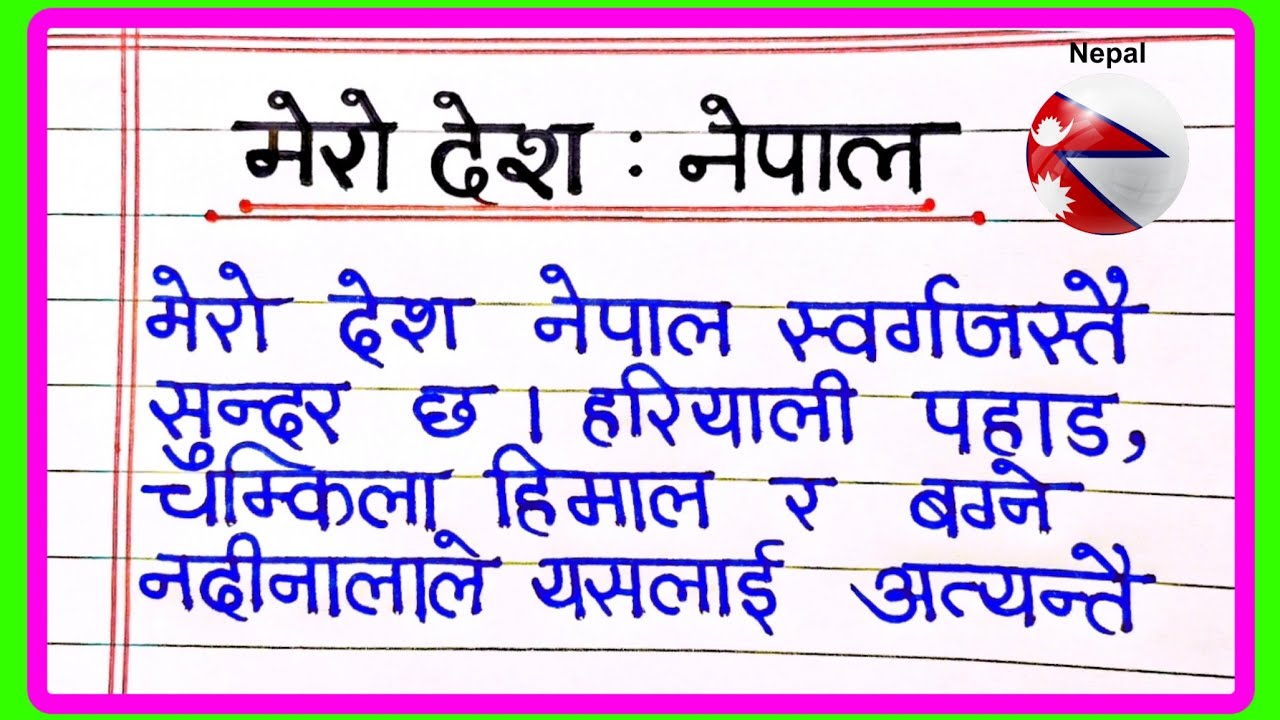 Nepal
मेरो देश : नेपाल
मेरो देश नेपाल स्वर्गजस्तै
सुन्दर छ । हरियाली पहाड,
चम्किला हिमाल र बग्ने
नदीनालाले यसलाई अत्यन्तै